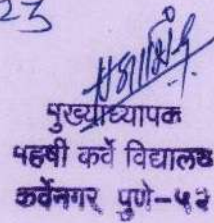 23
मुख्याध्यापक
महर्षी कर्वे विद्यालय
कर्वेनगर, पुणे-५२